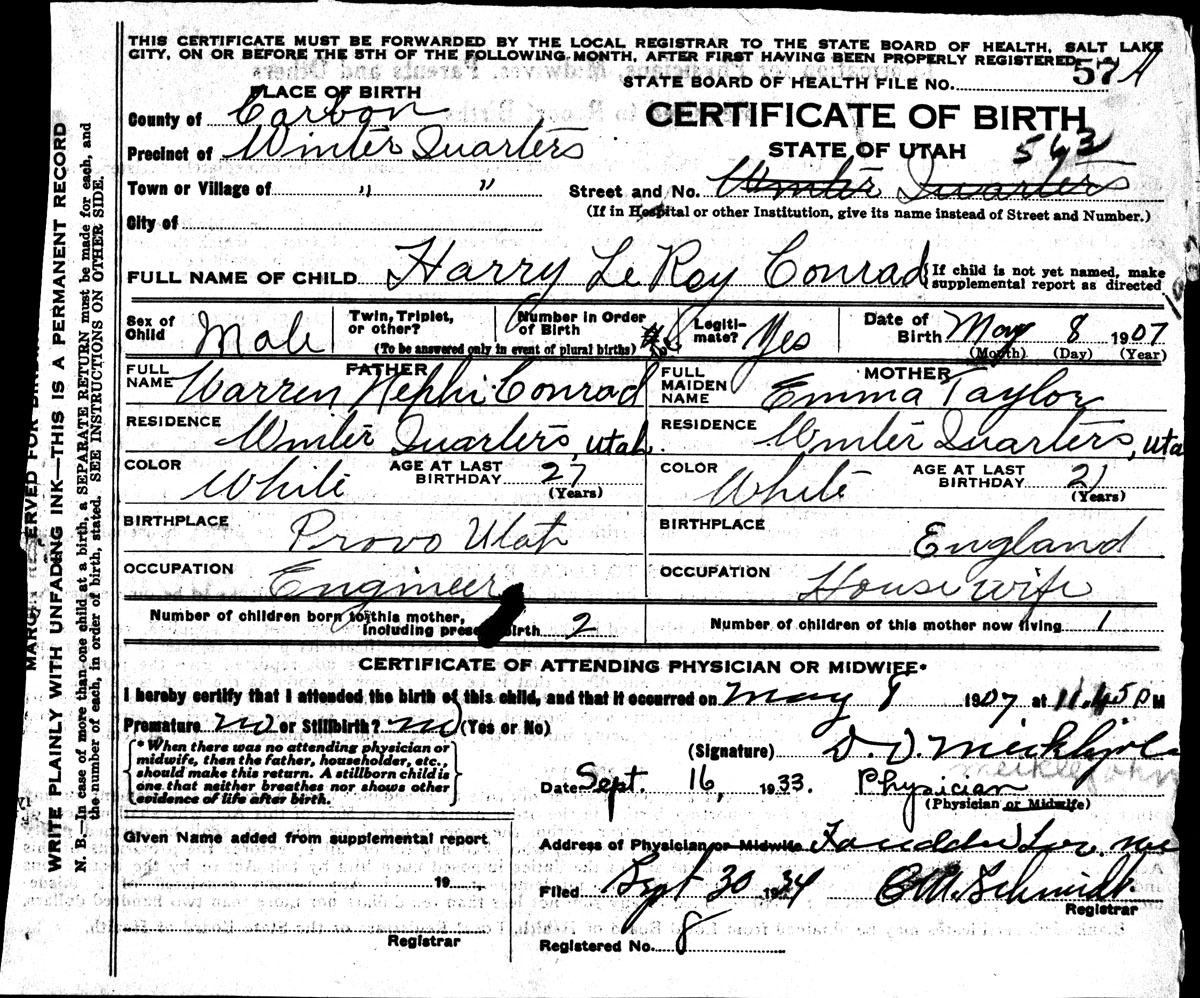 THIS CERTIFICATE MUST BE FORWARDED BY THE LOCAL REGISTRAR TO THE STATE BOARD OF HEALTH, SALT LAKE
CITY, ON OR BEFORE THE 5TH OF THE FOLLOWING MONTH, AFTER FIRST HAVING BEEN PROPERLY REGISTERED.
STATE BOARD OF HEALTH FILE NO. 57 A
PLACE OF BIRTH
CERTIFICATE OF BIRTH
STATE OF UTAH 563
County of Carbon
Precinct of Winter Quarters
Town or Village of " "
Street and No. Winter Quarters
(If in Hospital or other Institution, give its name instead of Street and Number.)
City of
FULL NAME OF CHILD Harry Le Roy Conrad
If child is not yet named, make
supplemental report as directed
Sex of Child Male
Twin, Triplet, or other?
Number in Order of Birth
(To be answered only in event of plural births)
Legiti-mate? Yes
Date of Birth May 8 1907
(Month) (Day) (Year)
FATHER
FULL NAME Warren Nephi Conrad
RESIDENCE Winter Quarters, Utah.
COLOR White AGE AT LAST BIRTHDAY 27 (Years)
BIRTHPLACE Provo Utah
OCCUPATION Engineer
MOTHER
FULL MAIDEN NAME Emma Taylor
RESIDENCE Winter Quarters, Uta
COLOR White AGE AT LAST BIRTHDAY 21 (Years)
BIRTHPLACE England
OCCUPATION Housewife
Number of children born to this mother,
including present birth 2
Number of children of this mother now living 1
CERTIFICATE OF ATTENDING PHYSICIAN OR MIDWIFE*
I hereby certify that I attended the birth of this child, and that it occurred on May 8 1907 at 11.45 P M
Premature no or Stillbirth? no (Yes or No)
* When there was no attending physician or
midwife, then the father, householder, etc.,
should make this return. A stillborn child is
one that neither breathes nor shows other
evidence of life after birth.
(Signature) D. D.
meiklejohn
Date Sept. 16, 1933. Physician
(Physician or Midwife)
Given Name added from supplemental report
19
Registrar
Address of Physician or Midwife
Filed Sept 30 1934 Schmidt
Registrar
Registered No. 8
WRITE PLAINLY WITH UNFADING INK—THIS IS A PERMANENT RECORD
N. B.—In case of more than one child at a birth, a SEPARATE RETURN must be made for each, and
the number of each, in order of birth, stated. SEE INSTRUCTIONS ON OTHER SIDE.